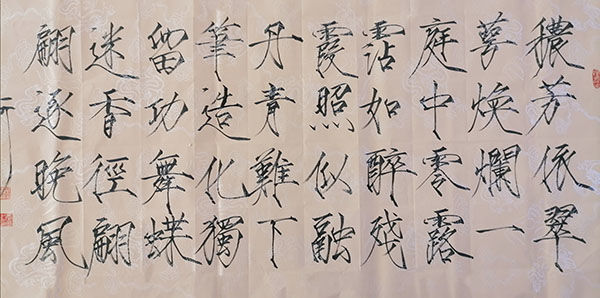 穠芳依翠
萼煥爛一
庭中零露
霑如醉殘
霞照似融
丹青難下
筆造化獨
留功舞蝶
迷香徑翩
翩逐晚風